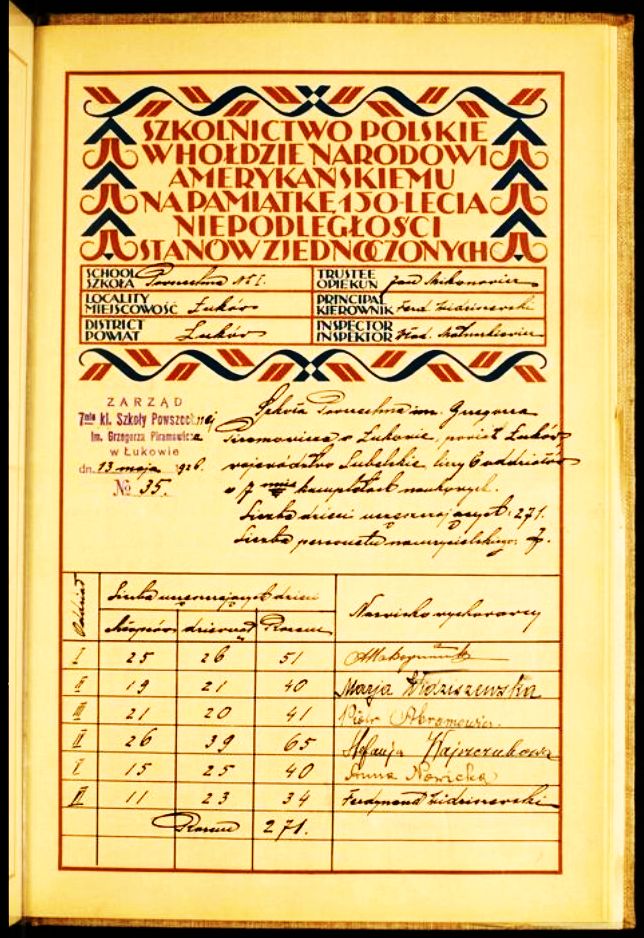 SZKOLNICTWO POLSKIE
W HOŁDZIE NARODOWI
AMERYKAŃSKIEMU
NA PAMIĄTKĘ 150-LECIA
NIEPODLEGŁOŚCI
STANÓW ZJEDNOCZONYCH
SCHOOL
SZKOŁA Powszechna № 1.
TRUSTEE
OPIEKUN Jan
LOCALITY
MIEJSCOWOŚĆ Łuków
PRINCIPAL
KIEROWNIK Ferd. Widziszewski
DISTRICT
POWIAT Łuków
INSPECTOR
INSPEKTOR Wład.
ZARZĄD
7mio kl. Szkoły Powszechnej
im. Grzegorza Piramowicza
w Łukowie
dn. 13 maja 1926.
№ 35.
Szkoła Powszechna im. Grzegorza
Piramowicza w Łukowie, powiat Łuków
województwo Lubelskie, liczy 6 oddziałów
o 7 kompletach naukowych.
Liczba dzieci uczęszczających: 271.
Liczba personelu nauczycielskiego: 7.
Oddział
Liczba uczęszczających dzieci
Nazwisko wychowawcy
chłopców dziewcząt Razem
I 25 26 51
II 19 21 40 Marja Widziszewska
III 21 20 41 Piotr Abramowicz.
IV 26 39 65 Stefanja Wajszczukowa
V 15 25 40 Anna Nowicka
VI 11 23 34 Ferdynand Widziszewski
Razem 271.